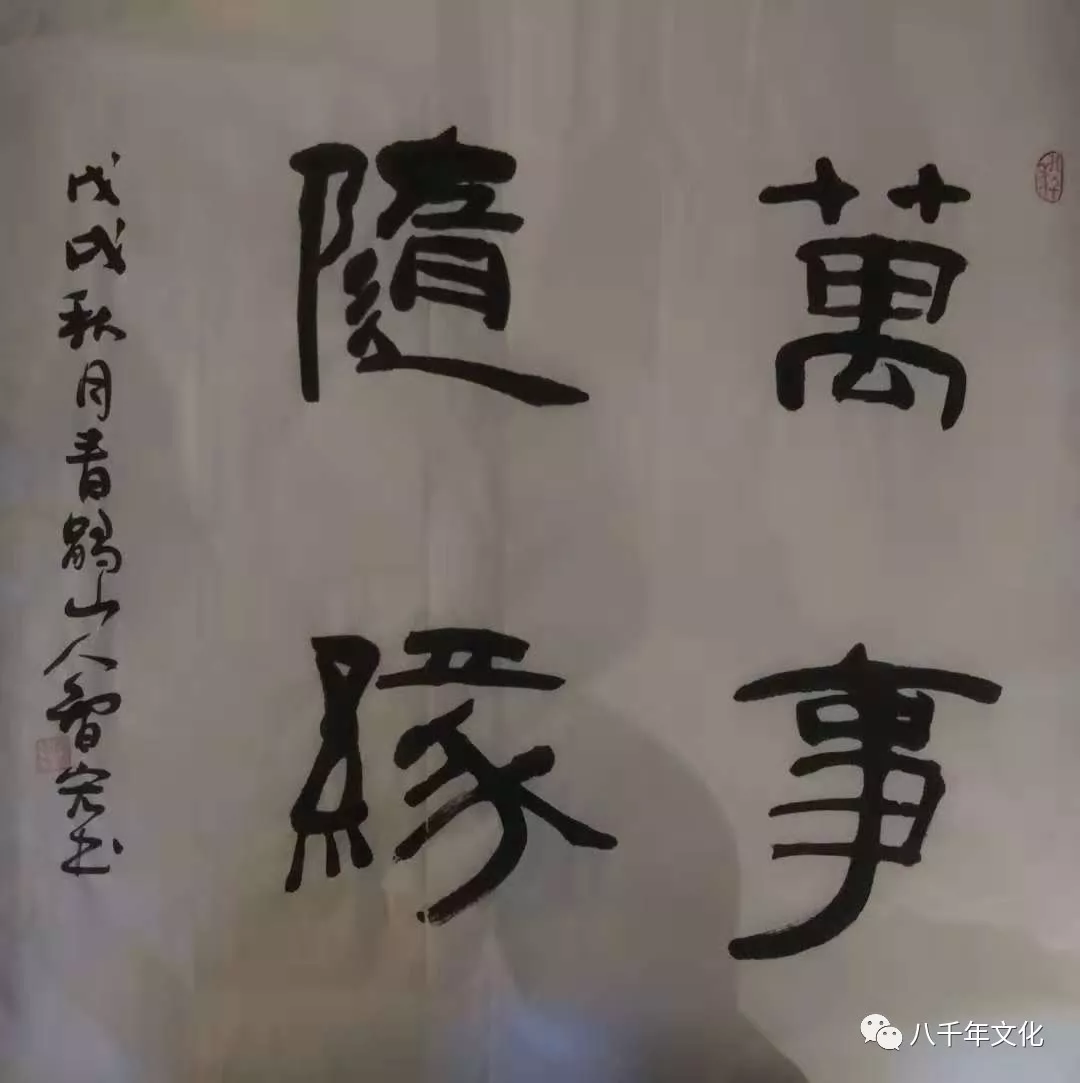 萬事
隨緣
戊戌秋月青鶴山人智宏书
八千年文化